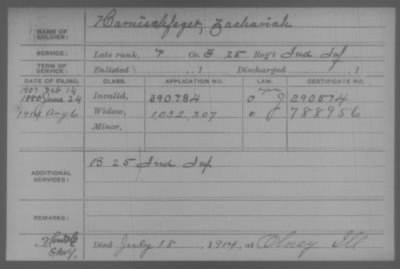 NAME OF SOLDIER: Harnischfeger, Zachariah
SERVICE: Late rank, Co. E 25 Reg't Ind Inf
TERM OF SERVICE: Enlisted , 1 Discharged , 1
DATE OF FILING. CLASS. APPLICATION NO. LAW. CERTIFICATE NO.
1907 Feb 14
1880 June 24 Invalid, 390.784 290574
1914 Aug 6 Widow, 1,032,307 788956
Minor,
ADDITIONAL SERVICES: B 25 Ind Inf
REMARKS:
Died July 18, 1914, at Olney Ill